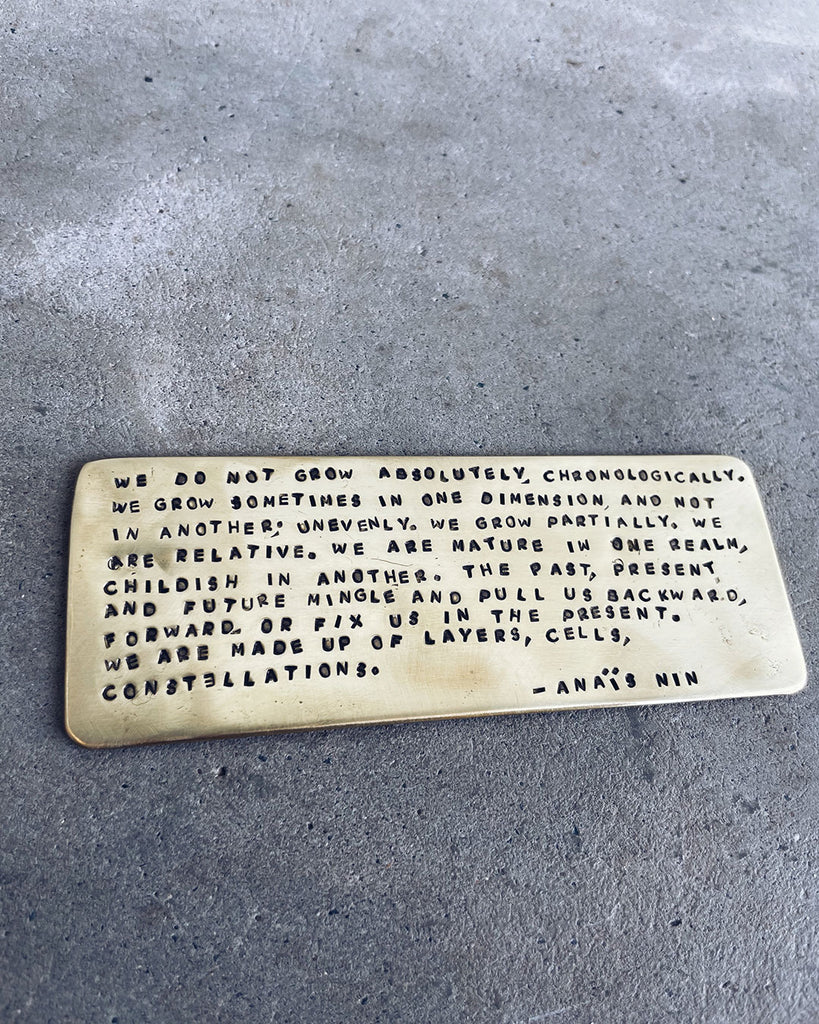 WE DO NOT GROW ABSOLUTELY, CHRONOLOGICALLY.
WE GROW SOMETIMES IN ONE DIMENSION, AND NOT
IN ANOTHER; UNEVENLY. WE GROW PARTIALLY. WE
ARE RELATIVE. WE ARE MATURE IN ONE REALM,
CHILDISH IN ANOTHER. THE PAST, PRESENT
AND FUTURE MINGLE AND PULL US BACKWARD,
FORWARD, OR FIX US IN THE PRESENT.
WE ARE MADE UP OF LAYERS, CELLS,
CONSTELLATIONS.
– ANAÏS NIN